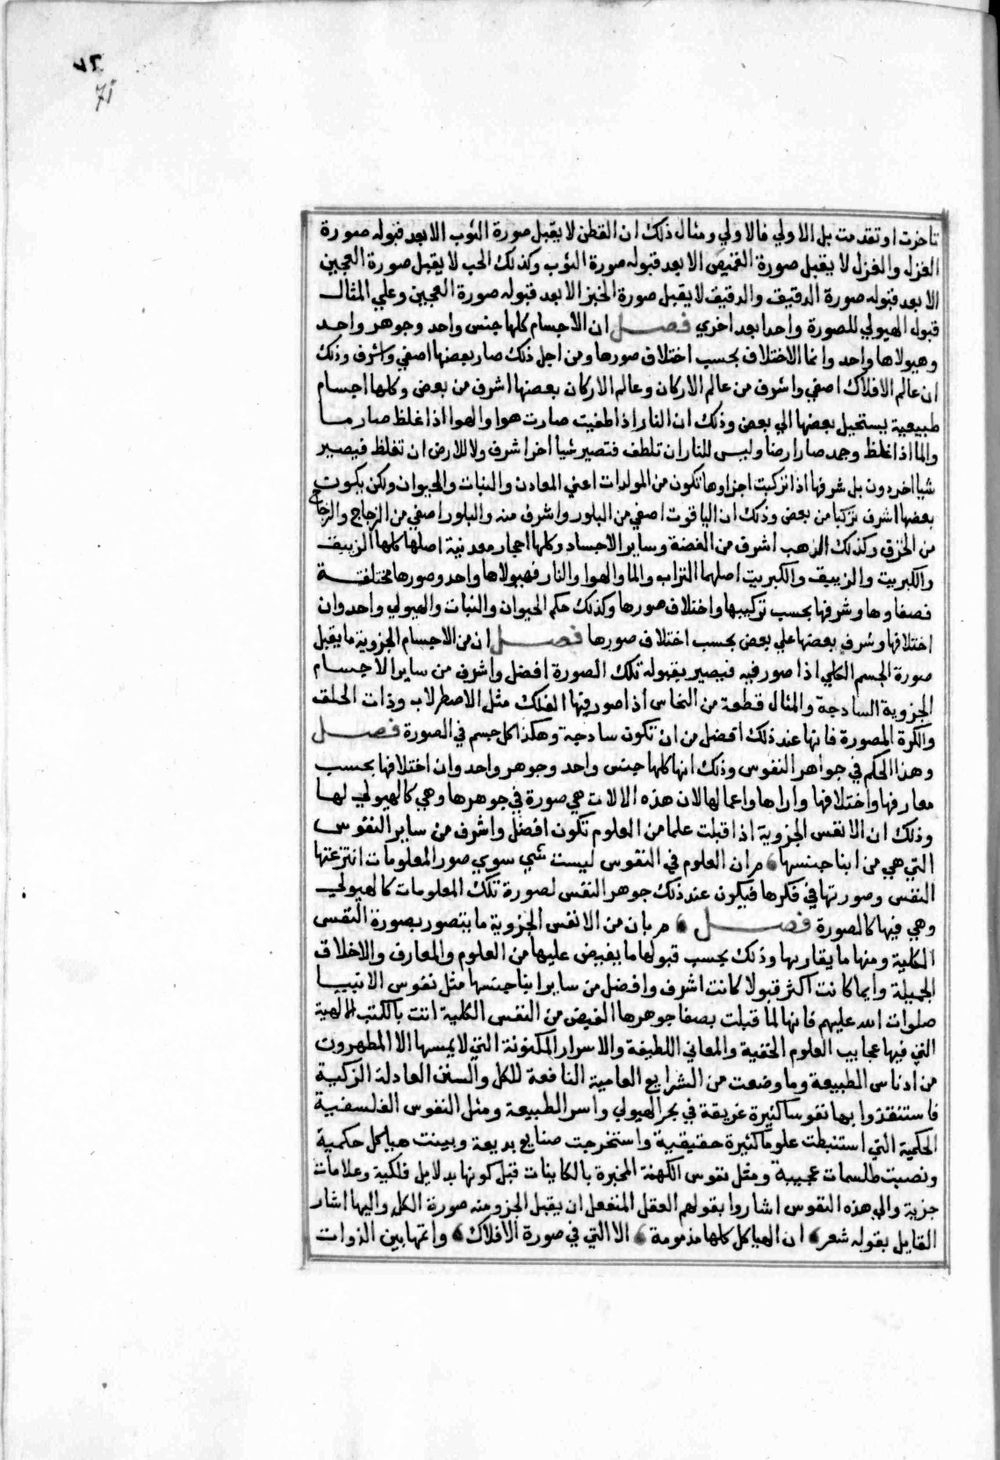 ٧٢
71
تاخرت او تقدمت بل الاولي فالاولي ومثال ذلك ان القطن لا يقبل صورة الثوب الا بعد قبوله صورة
الغزل والغزل لا يقبل صورة القميص الا بعد قبوله صورة الثوب وكذلك الحب لا يقبل صورة العجين
الا بعد قبوله صورة الدقيق والدقيق لا يقبل صورة الخبز الا بعد قبوله صورة العجين وعلي المثال
قبول الهيولي للصورة واحدا بعد اخري فصل ان الاجسام كلها جنس واحد وجوهر واحد
وهيولاها واحد وانما الاختلاف بحسب اختلاف صورها ومن اجل ذلك صار بعضها اصفي واشرف وذلك
ان عالم الافلاك اصفي واشرف من عالم الاركان وعالم الاركان بعضها اشرف من بعض وكلها اجسام
طبيعية يستحيل بعضها الي بعض وذلك ان النار اذا اطفيت صارت هوا والهوا اذا غلظ صار ما
والما اذا غلظ وجمد صار ارضا وليس للنار ان تلطف فتصير شيا اخر اشرف ولا للارض ان تغلظ فيصير
شيا اخر دون بل شرفها اذا تركبت اجزاوها تكون من المولدات اعني المعادن والنبات والحيوان ولكن يكون
بعضها اشرف تركيبا من بعض وذلك ان الياقوت اصفي من البلور واشرف منه والبلور اصفي من الزجاج والزجاج
من الخزف وكذلك الذهب اشرف من الفضة وساير الاجساد وكلها احجار معدنية اصلها كلها الزيبق
والكبريت والزيبق والكبريت اصلهما التراب والما والهوا والنار فهيولاها واحد وصورها مختلفة
فصفاوها وشرفها بحسب تركيبها واختلاف صورها وكذلك حكم الحيوان والنبات والهيولي واحد وان
اختلافها وشرف بعضها علي بعض بحسب اختلاف صورها فصل ان من الاجسام الجزوية ما يقبل
صورة الجسم الكلي اذا صور فيه فيصير بقبوله تلك الصورة افضل واشرف من ساير الاجسام
الجزوية الساذجة والمثال قطعة من النحاس اذا صور فيها الفلك مثل الاصطرلاب وذات الحلق
والكرة المصورة فانها عند ذلك افضل من ان تكون ساذجة وهكذا كل جسم في الصورة فصل
وهذا الحكم في جواهر النفوس وذلك انها كلها جنس واحد وجوهر واحد وان اختلافها بحسب
معارفها واختلافها واراها واعمالها لان هذه الالات هي صورة في جوهرها وهي كالهيولي لها
وذلك ان الانفس الجزوية اذا قبلت علما من العلوم تكون افضل واشرف من ساير النفوس
التي هي من ابنا جنسها مران العلوم في النفوس ليست شي سوي صور المعلومات انتزعتها
النفس وصورتها في فكرها فيكون عند ذلك جوهر النفس لصورة تلك المعلومات كالهيولي
وهي فيها كالصورة فصل مر بان من الانفس الجزوية ما يتصور بصورة النفس
الكلية ومنها ما يقاربها وذلك بحسب قبولها ما يفيض عليها من العلوم والمعارف والاخلاق
الجميلة وايما كانت اكثر قبولا كانت اشرف وافضل من ساير ابنا جنسها مثل نفوس الانبيا
صلوات الله عليهم فانها لما قبلت بصفا جوهرها الفيض من النفس الكلية اتت بالكتب الالهية
التي فيها عجايب العلوم الخفية والمعاني اللطيفة والاسرار المكنونة التي لا يمسها الا المطهرون
من ادناس الطبيعة وما وضعت من الشرايع العامية النافعة للكل والسنن العادلة الزكية
فاستنقذوا بها نفوسا كثيرة غريقة في بحر الهيولي واسر الطبيعة ومثل النفوس الفلسفية
الحكمية التي استنبطت علوما كثيرة حقيقية واستخرجت صنايع بديعة وبينت هياكل حكمية
ونصبت طلسمات عجيبة ومثل نفوس الكهنة المخبرة بالكاينات قبل كونها بدلايل فلكية وعلامات
جزية والي هذه النفوس اشاروا بقولهم العقل المنفعل ان يقبل الجزو منه صورة الكل واليها اشار
القايل بقوله شعر ان الهياكل كلها مذمومة الا التي في صورة الافلاك وانها بين الذوات